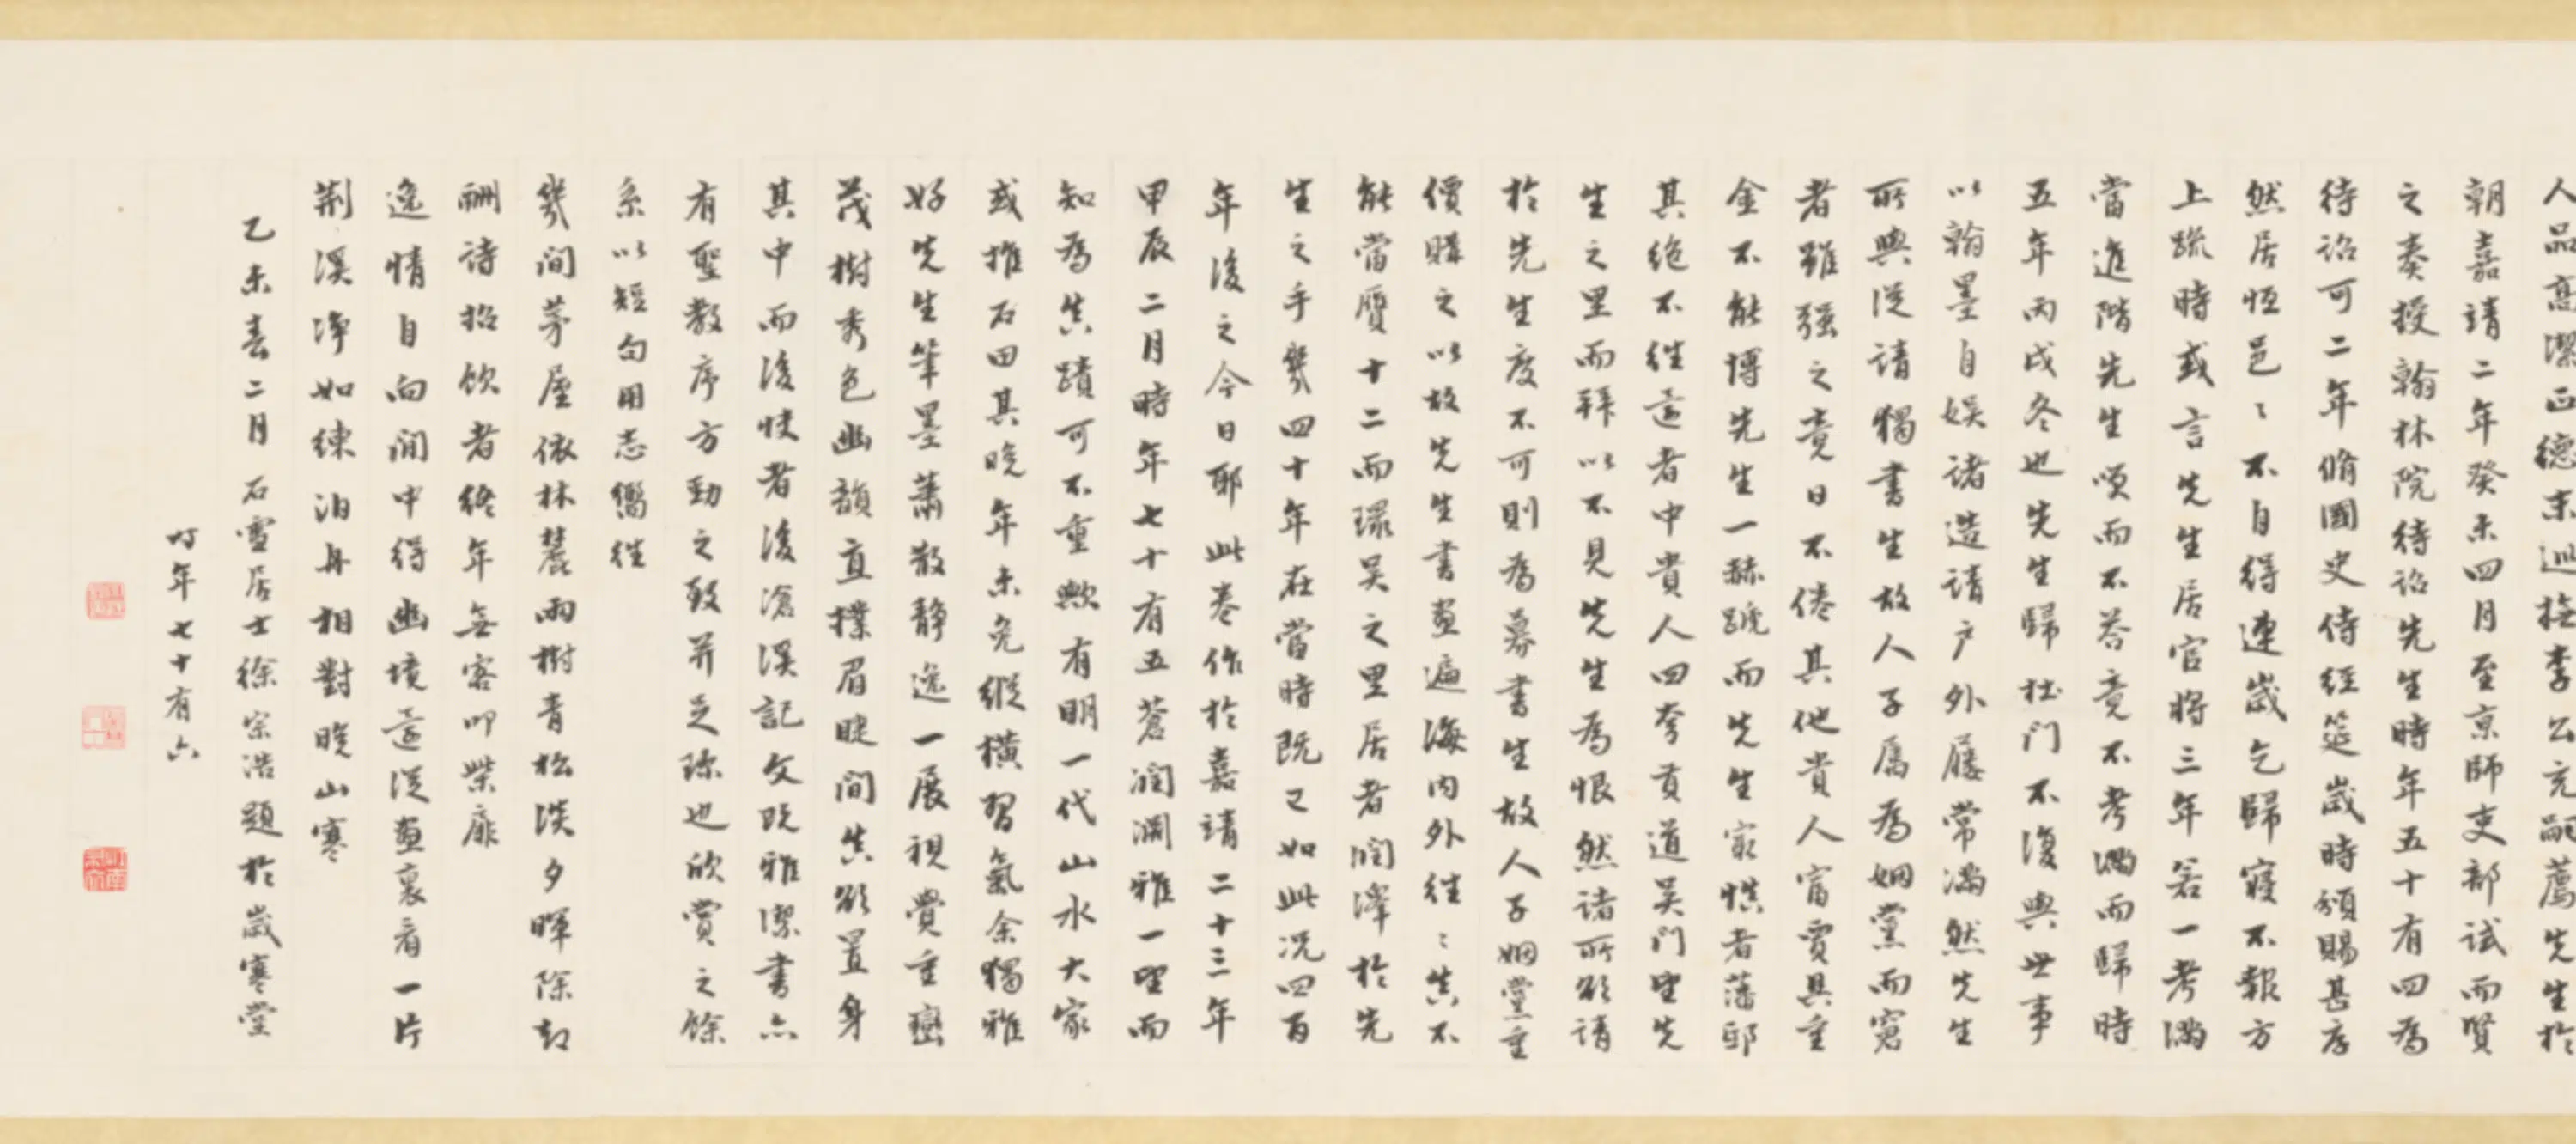 人品高潔正德末巡撫李公充嗣薦先生於
朝嘉靖二年癸未四月至京師吏部試而賢
之奏授翰林院待詔先生時年五十有四為
待詔可二年脩國史侍經筵歲時頒賜甚厚
然居恆邑〻不自得連歲乞歸寢不報方
上疏時或言先生居官將三年若一考滿
當進階先生唄而不荅竟不考滿而歸時
五年丙戌冬也先生歸杜門不復與世事
以翰墨自娛諸造請户外屨常滿然先生
所與從請獨書生故人子屬為姻黨而窘
者雖强之竟日不倦其他貴人富賈具重
金不能博先生一赫蹏而先生寂慎者藩邸
其絶不往還者中貴人四夸貢道吴門望先
生之里而拜以不見先生為恨然諸所欲請
於先生度不可則為募書生故人子姻黨重
價購之以故先生書畫遍海内外往〻真不
能當贋十二而環吴之里居者潤澤於先
生之手幾四十年在當時既已如此况四百
年後之今日耶此卷作於嘉靖二十三年
甲辰二月時年七十有五蒼潤淵雅一望而
知為真蹟可不重歟有明一代山水大家
或推石田其晚年未免縱橫習氣余獨雅
好先生筆墨蕭散静逸一展視覺重巒
茂樹秀色幽韻直撲眉睫間真欲置身
其中而後快者後滄溪記文既雅潔書亦
有聖教序方勁之致并足珍也欣賞之餘
系以短句用志嚮往
幾間茅屋依林麓雨樹青松淡夕暉除却
酬詩招飲者終年無客叩柴扉
逸情自向閒中得幽境還從畫裏看一片
荆溪淨如練泊舟相對晚山寒
乙未春二月石雪居士徐宗浩題於歲寒堂
时年七十有六